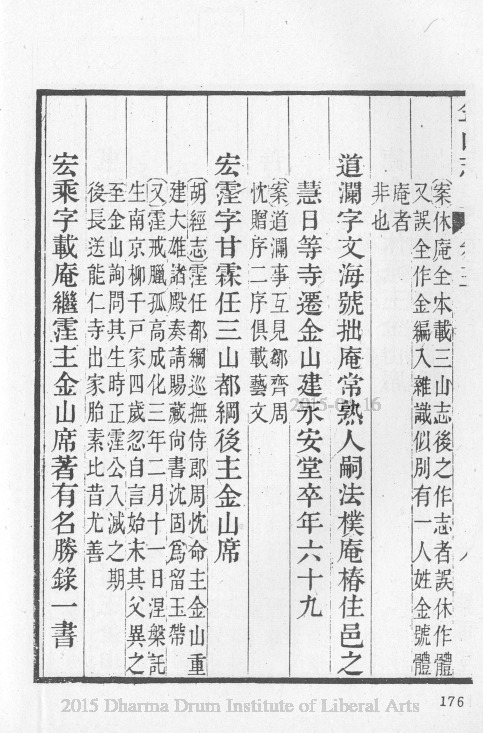 案休庵全本載三山志後之作志者誤休作體
又誤全作金編入雜識似別有一人姓金號體
庵者
非也
道瀾字文海號拙庵常熟人嗣法樸庵椿住邑之
慧日等寺遷金山建永安堂卒年六十九
案道瀾事互見鄒齊周
忱贈序二序俱載藝文
宏霔字甘霖任三山都綱後主金山席
胡經志霔任都綱巡撫侍郎周忱命主金山重
建大雄諸殿奏請賜藏尙書沈固爲留玉帶
又霔戒臘孤高成化三年二月十一日涅槃託
生南京柳千戸家四歲忽自言始末其父異之
至金山詢問其生時正霔公入滅之期
後長送能仁寺出家胎素比昔尤善
宏乘字載庵繼霔主金山席著有名勝錄一書
2015-01-16
176
2015 Dharma Drum Institute of Liberal Arts